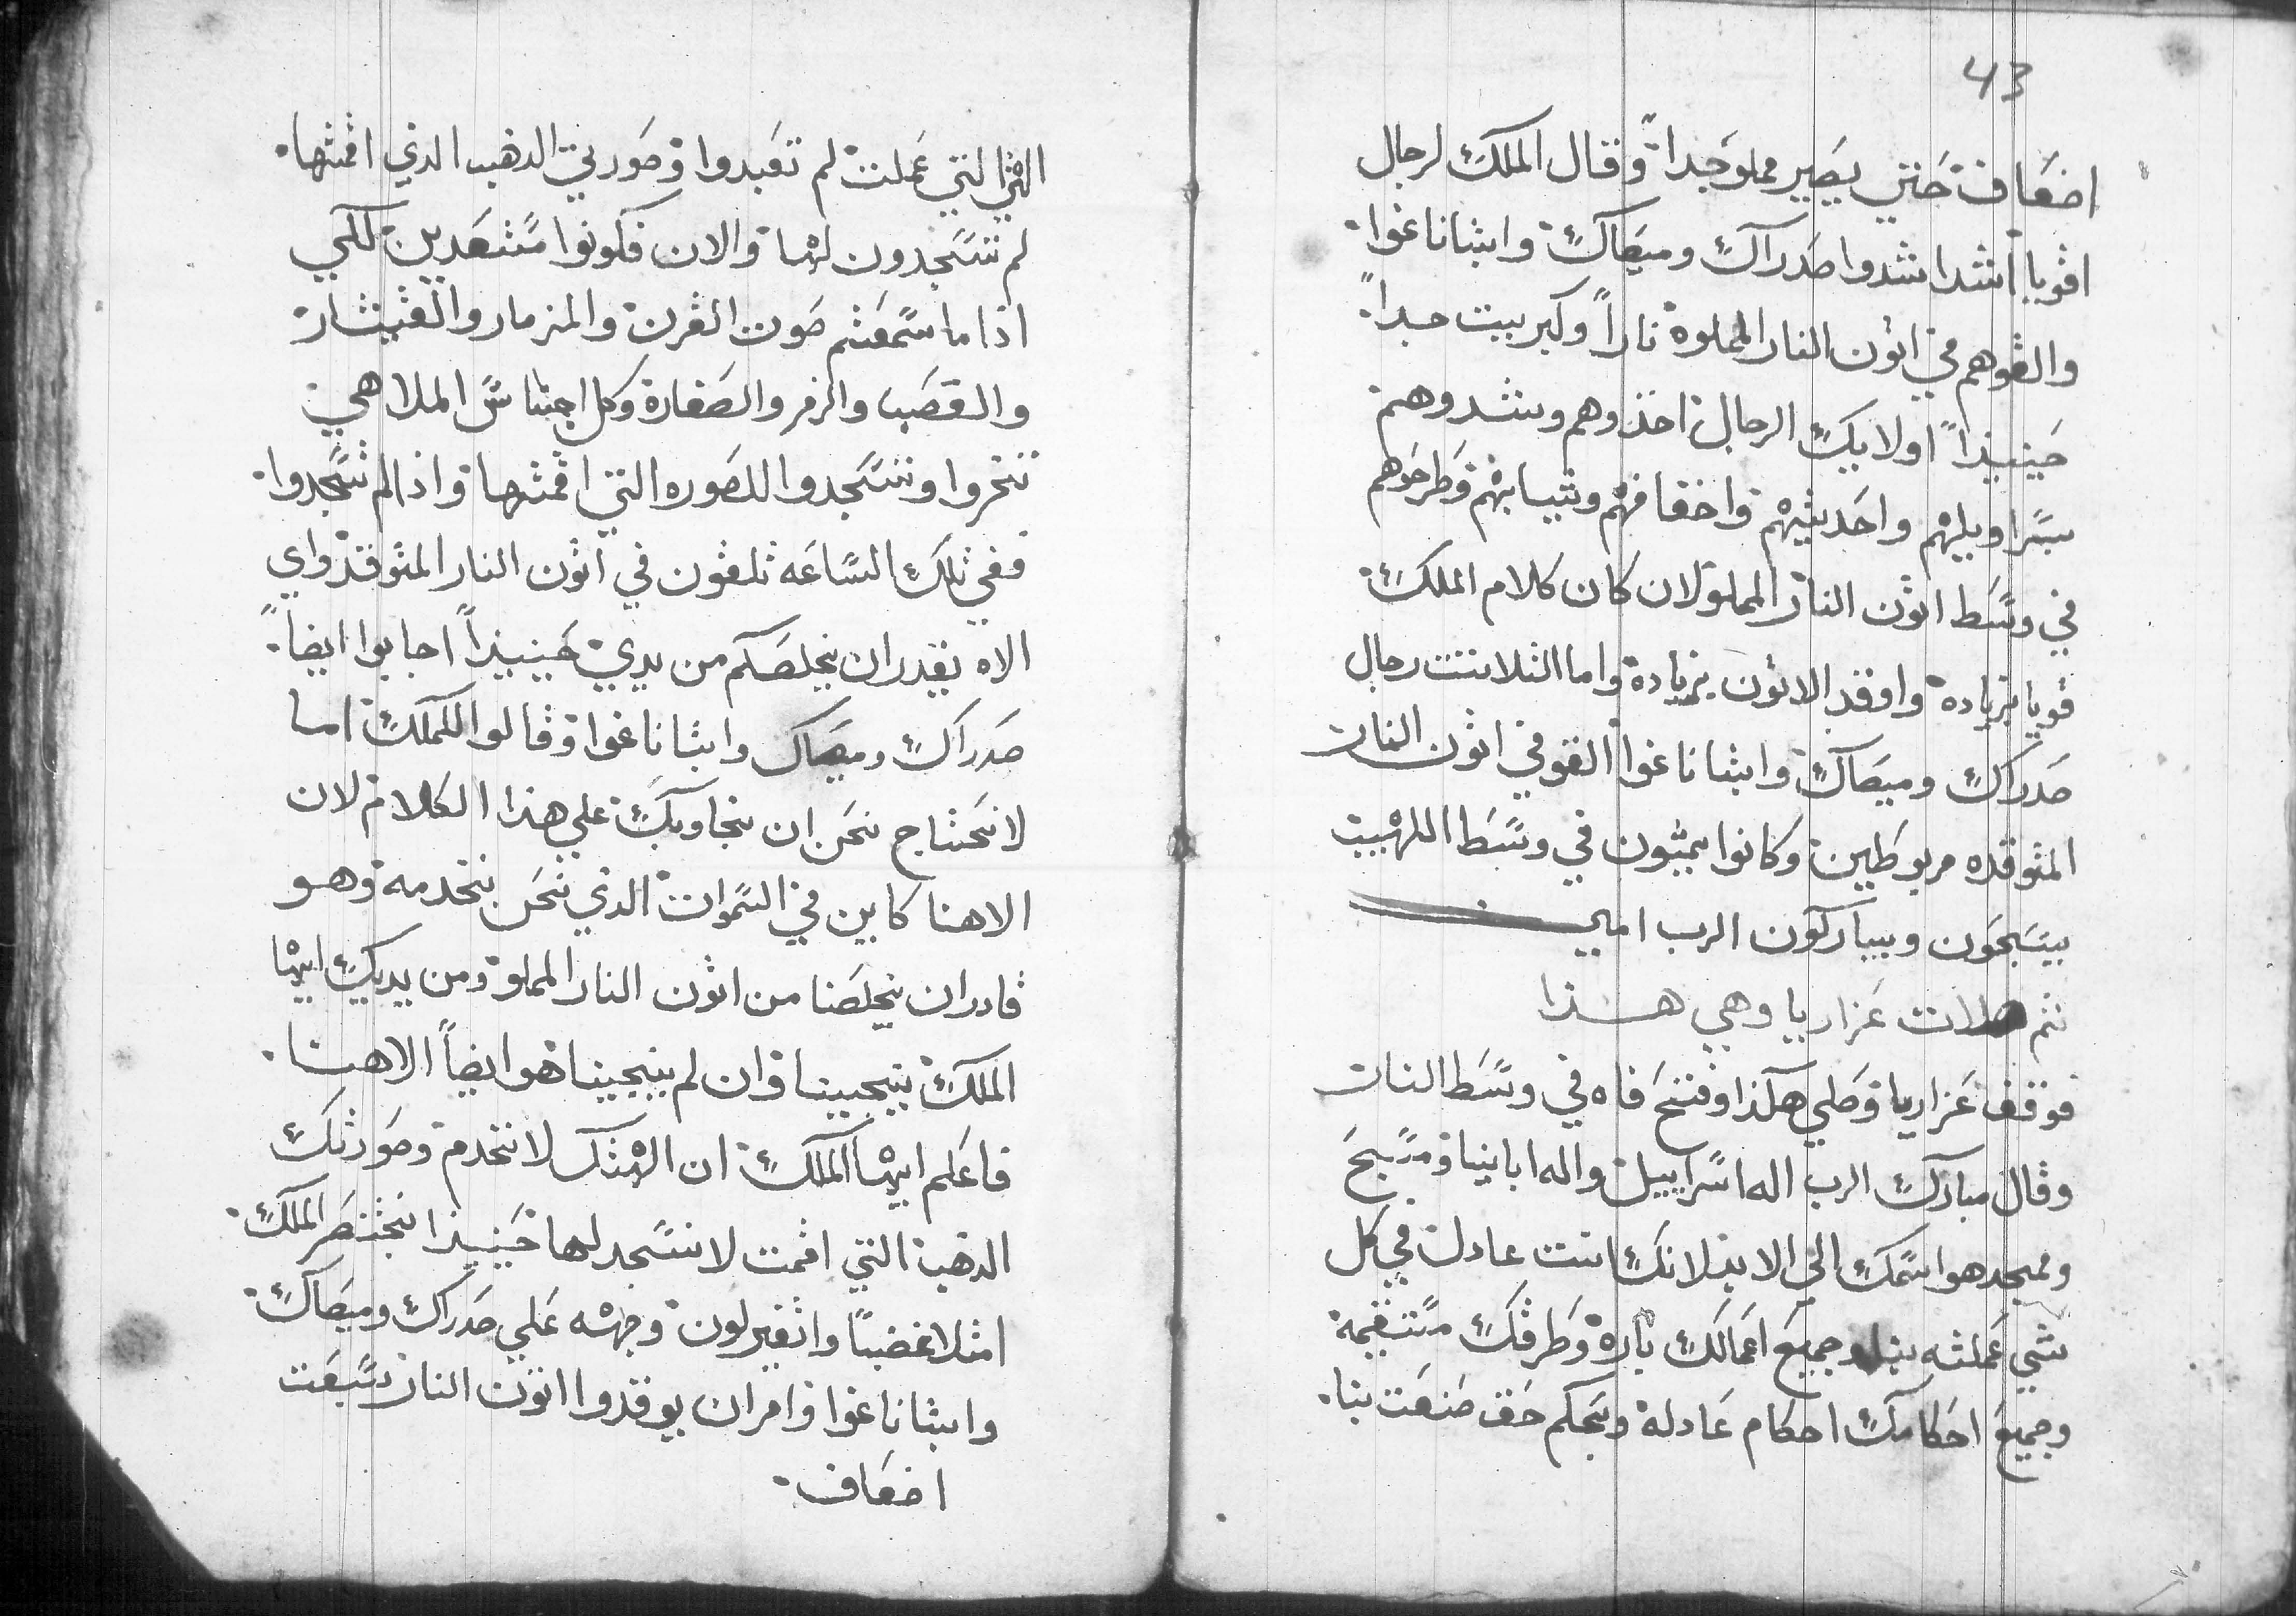 الهتي التي عملت لم تعبدوا وصورتي الدهب الدي اقمتها
لم تسجدون لها والان فكونوا مستعدين للكي
اذا ما سمعتم صوت القرن والمزمار والقيتار
والقصب والزمر والصفارة وكل اجناس الملاهي
تخروا وتسجدوا للصوره التي اقمتها واذا لم تسجدوا
ففي تلك الساعه تلقون في اتون النار المتوقد واي
الاه يقدر ان يخلصكم من يدي حينيذاً اجابوا ايضاً
صدراك وميصاك وابثاناغوا وقالوا للملك اما
لا نحتاج نحن ان نجاوبك علي هذا الكلام لان
الاهنا كاين في السموات الدي نحن بنخدمه وهو
قادر ان يخلصنا من اتون النار المملو ومن يديك ايها
الملك ينجينا وان لم ينجينا هو ايضاً الاهنا
فاعلم ايها الملك ان الهتك لا نخدم وصورتك
الدهب التي اقمت لا نسجد لها حينيذا نختنصر الملك
امتلا غضباً واتغير لون وجهه علي صدراك وميصاك
وابثاناغوا وامر ان يوقدوا اتون النار سبعت
اضعاف
43
اضعاف حتي يصير مملو جداً وقال الملك لرجال
اقويا اشدا شدوا صدراك وميصاك وابثاناغوا
والقوهم في اتون النار المملوة ناراً وكبريت جداً
حينيذاً اولايك الرجال اخذوهم وشدوهم
بسراويلهم واحديتهم واخفافهم وثيابهم وطرحوهم
في وسط اتون النار المملو لان كان كلام الملك
قويا بزياده واوقد الاتون بزيادة واما الثلاتت رجال
صدراك وميصاك وابثاناغوا القو في اتون النار
المتوقده مربوطين وكانوا يمشون في وسط اللهيب
بيسبحون ويباركون الرب امين
ثم صلات عزاريا وهي هذا
فوقف عزاريا وصلي هكذا وفتح فاه في وسط النار
وقال مبارك الرب اله اسراييل واله اباينا ومسبح
وممجد هو اسمك الي الابد لانك انت عادل في كل
شي عملته بنا وجميع اعمالك بارة وطرقك مستقيمة
وجميع احكامك احكام عادلة وبحكم حق صنعت بنا